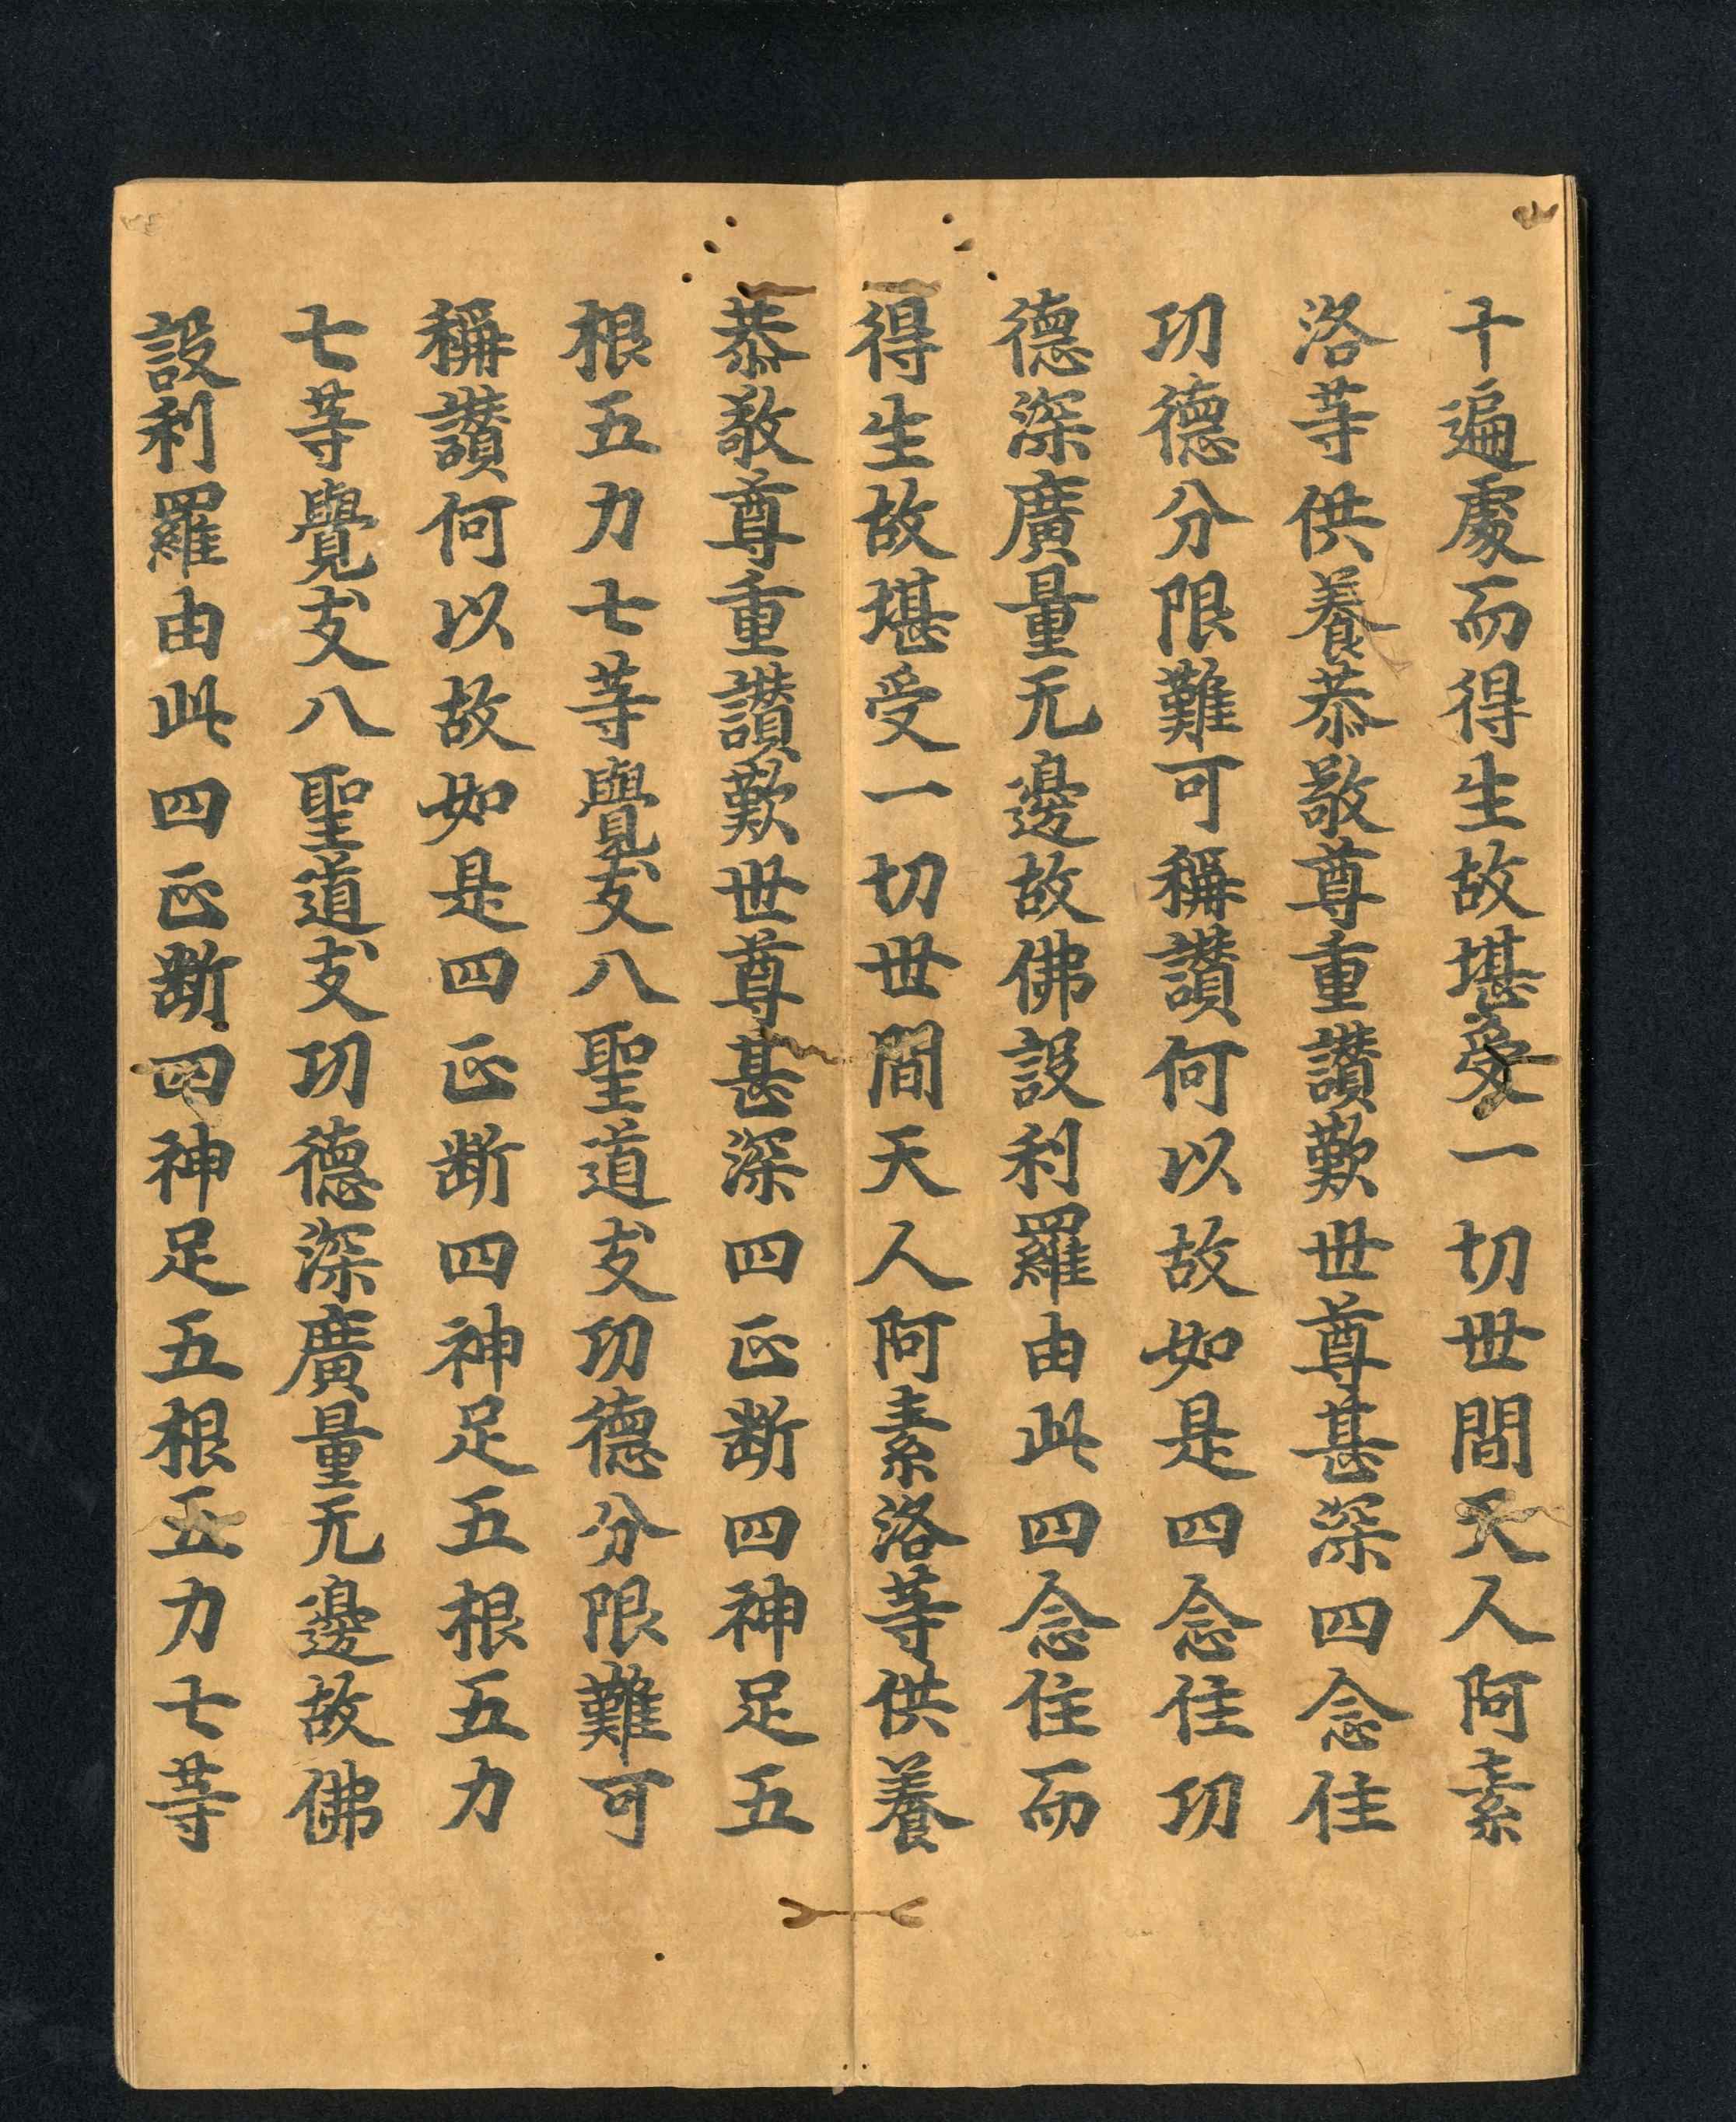 十遍處而得生故堪受一切世間天人阿素
洛等供養恭敬尊重讚歎世尊甚深四念住
功德分限難可稱讚何以故如是四念住功
德深廣量无邊故佛設利羅由此四念住而
得生故堪受一切世間天人阿素洛等供養
恭敬尊重讚歎世尊甚深四正斷四神足五
根五力七等覺支八聖道支功德分限難可
稱讚何以故如是四正斷四神足五根五力
七等覺支八聖道支功德深廣量无邊故佛
設利羅由此四正斷四神足五根五力七等